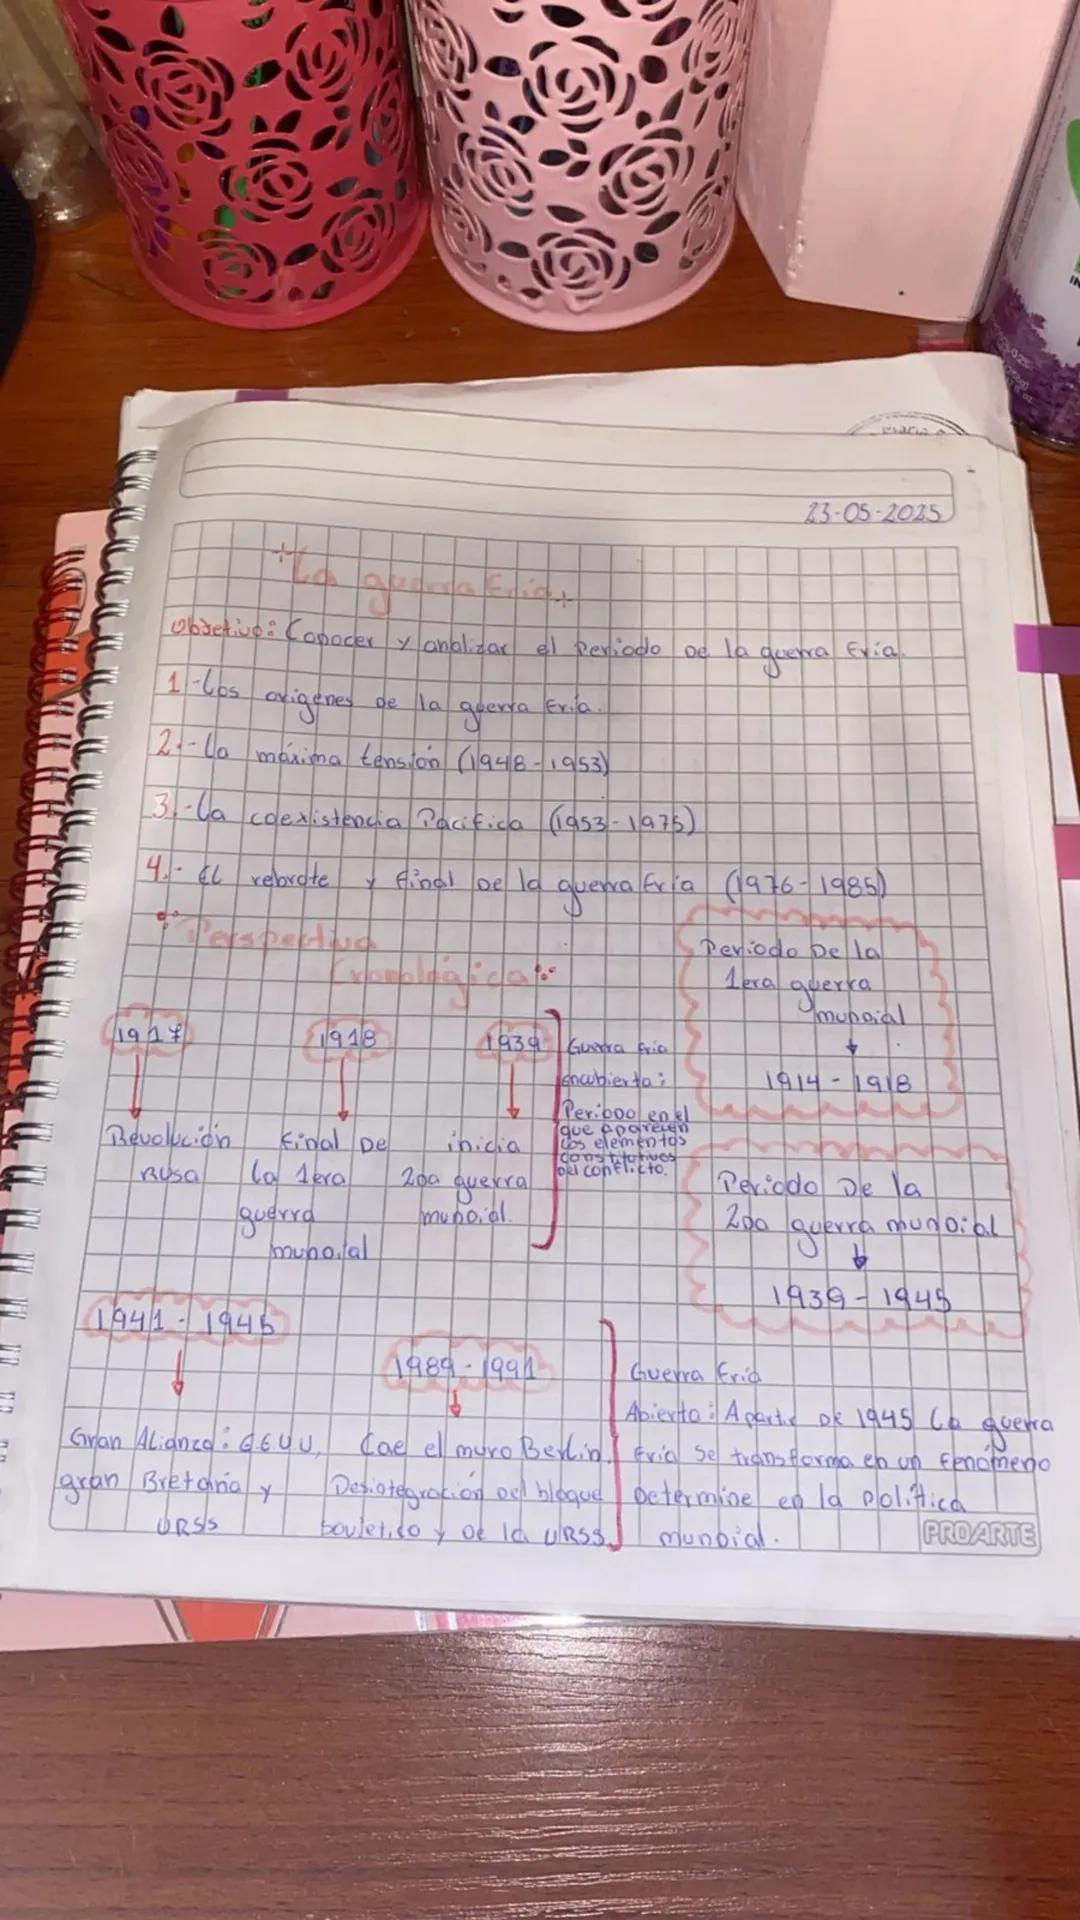 23-05-2025
La guerra fria
Objetivo: Conocer y analizar el Periodo De la guerra fria.
1.-Los origenes De la guerra fria.
2.-La máxima tensión (1948-1953)
3.-La coexistencia Pacifica (1953-1975)
4.-El rebrote y final De la guerra fria (1976-1985)
Perspectiva
Cronológica
Periodo De la
1era guerra
mundial
1914-1918
1917
1918
1939
Revolución
Rusa
final De
la 1era
guerra
mundial
inicia
2da guerra
mundial.
Guerra fria
encubierta:
Periodo en el
que aparecen
los elementos
constitutivos
Del conflicto.
Periodo De la
2da guerra mundial
1939-1945
1941-1945
1989-1991
Gran Alianza: EEUU,
gran Bretaña y
URSS
Cae el muro Berlin.
Desintegración del bloque
sovietico y de la URSS.
Guerra fria
Abierta: A partir De 1945 la guerra
fria se transforma en un fenómeno
Determine en la política
mundial.
PROARTE